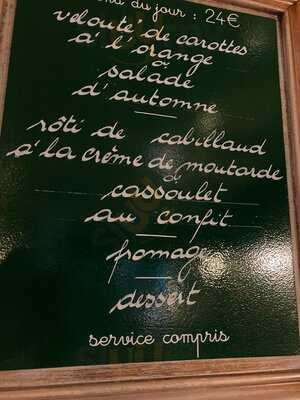 menu du jour : 24€
velouté de carottes
à l'orange
ou
salade
d'automne
rôti de cabillaud
à la crème de moutarde
ou
cassoulet
au confit
fromage
dessert
service compris